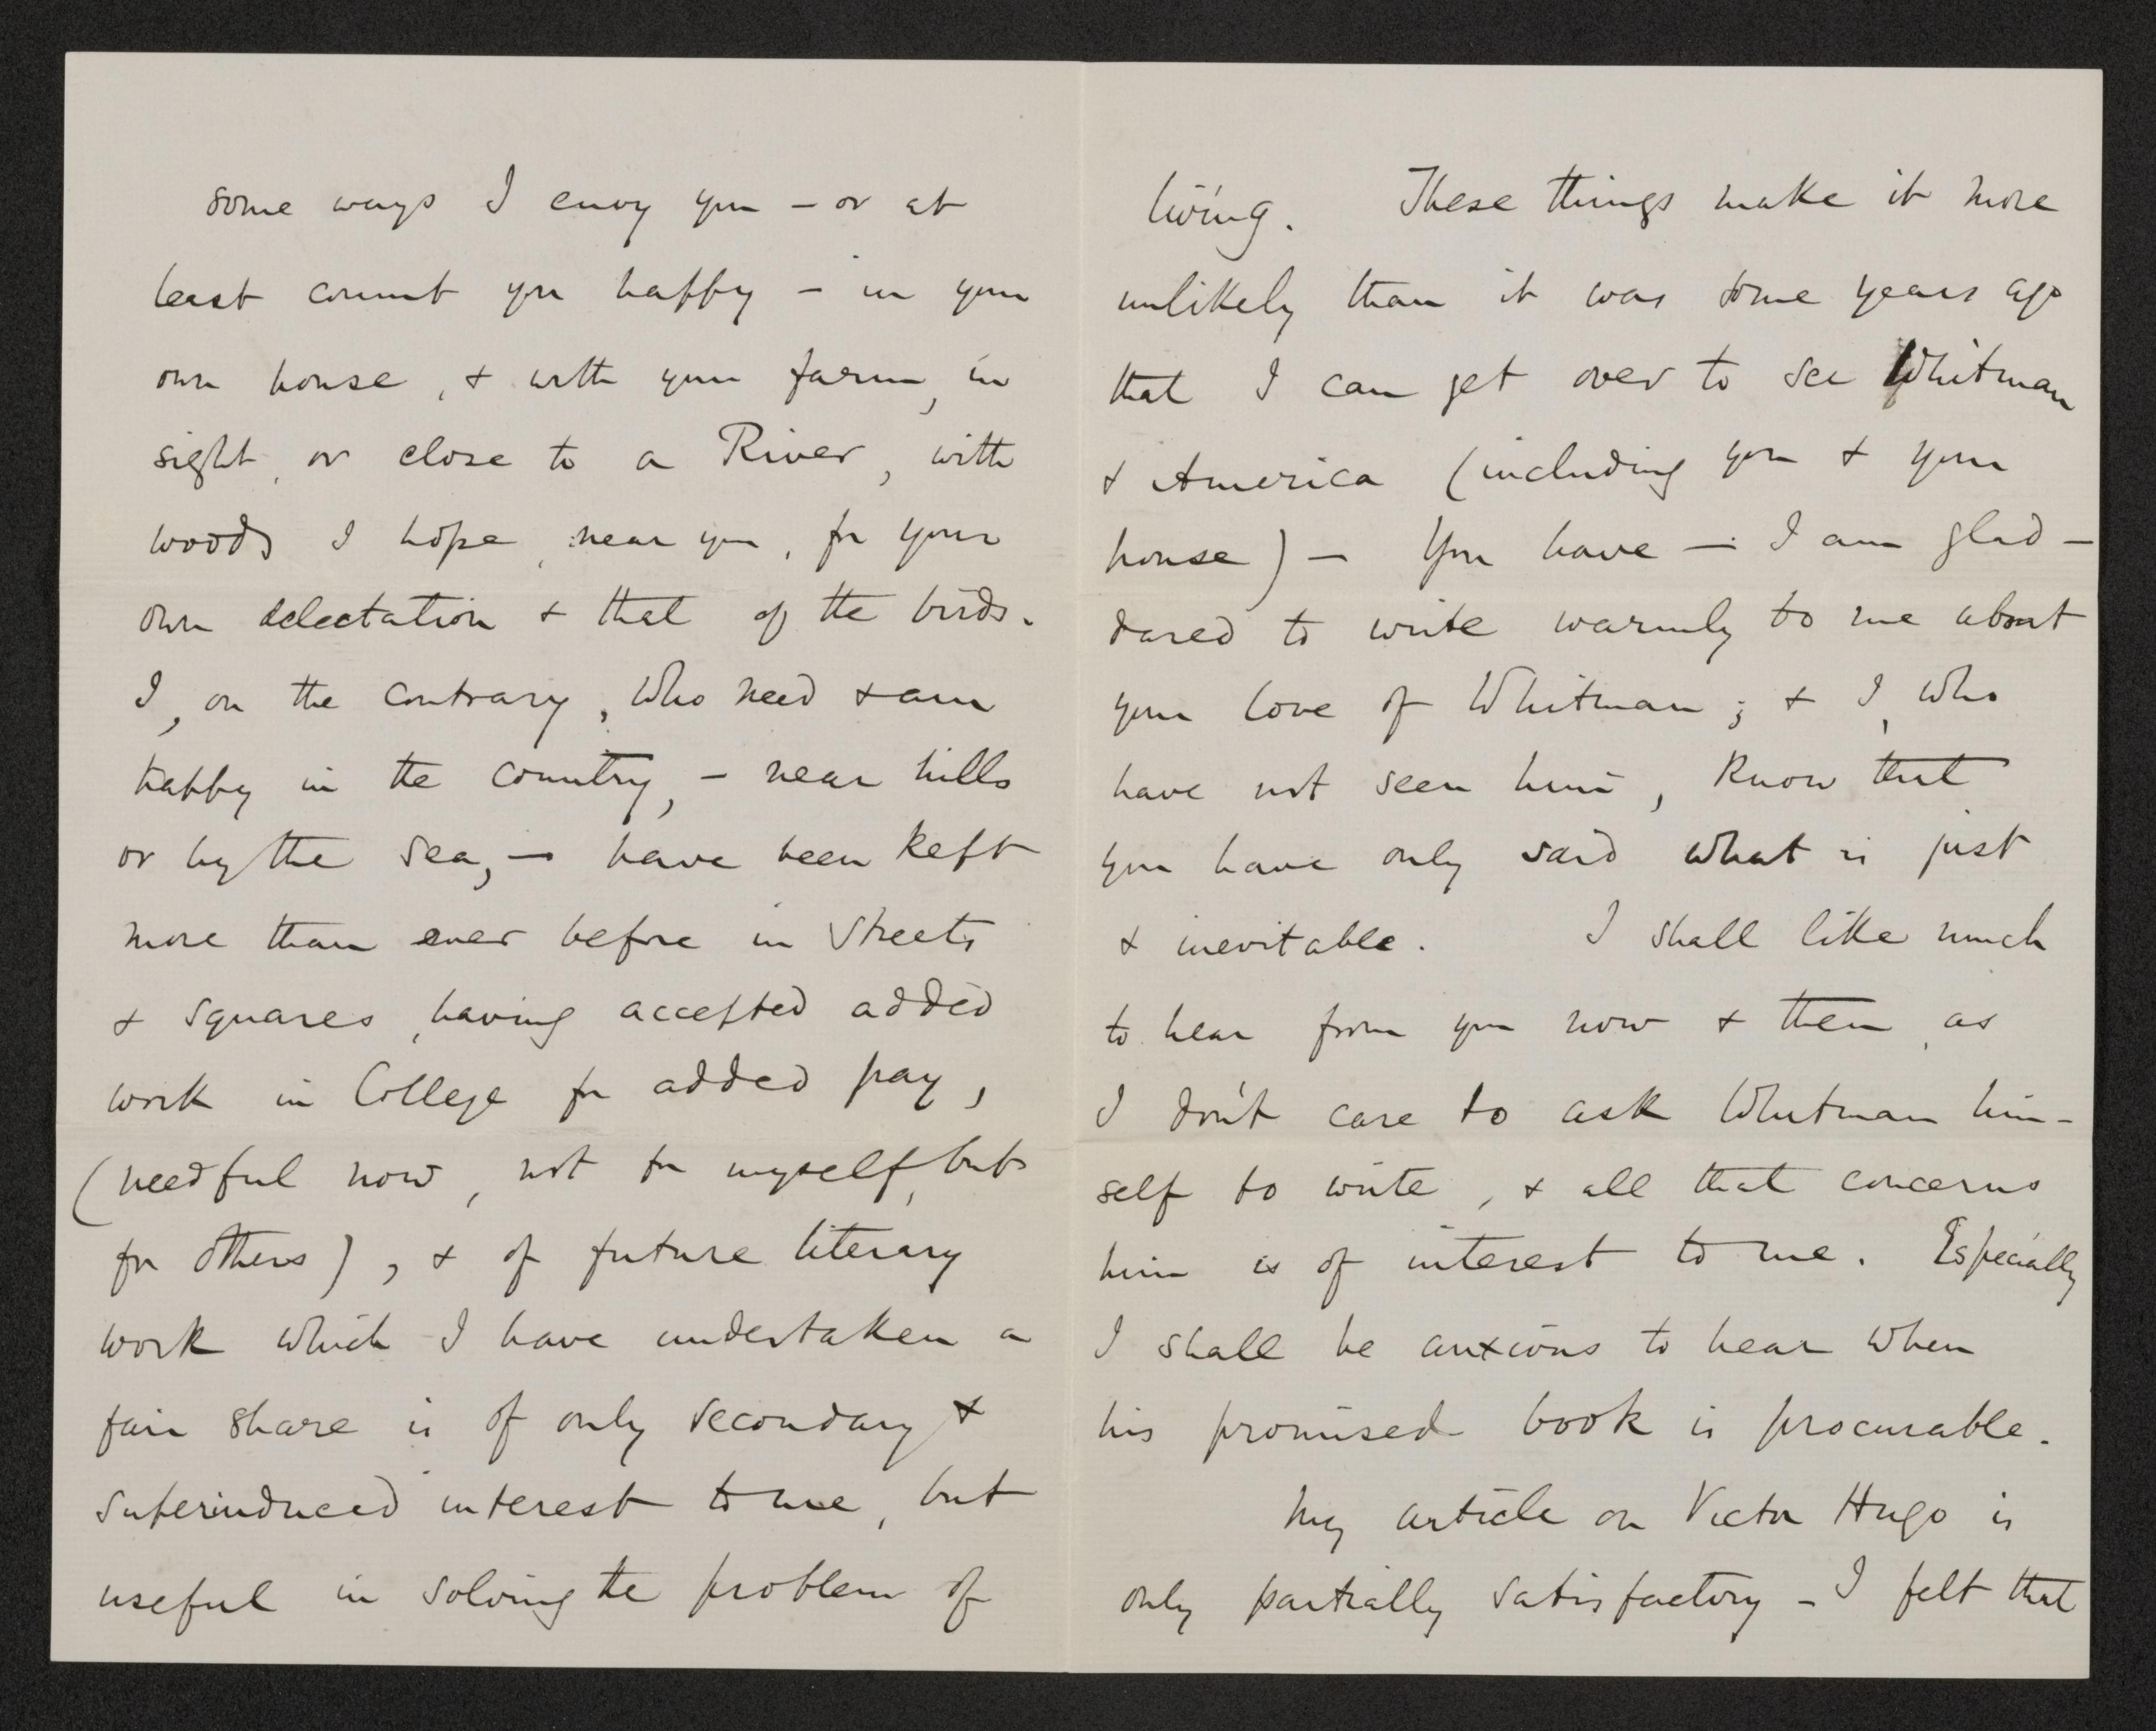 some ways I envy you – or at
least count you happy – in your
own house, & with your farm, in
sight, or close to a River, with
woods I hope, near you, for your
own delectation & that of the birds.
I, on the contrary, who need & am
happy in the country, – near hills
or by the sea, – have been kept
more than ever before in streets
& squares, having accepted added
work in College for added pay,
(needful now, not for myself, but
for others), & of future literary
work which I have undertaken a
fair share is of only secondary &
superinduced interest to me, but
useful in solving the problem of
living. These things make it more
unlikely than it was some years ago
that I can get over to see Whitman
& America (including you & your
house) – You have – I am glad –
dared to write warmly to me about
your love of Whitman; & I, who
have not seen him, know that
you have only said what is just
& inevitable. I shall like much
to hear from you now & then, as
I don't care to ask Whitman him-
self to write, & all that concerns
him is of interest to me. Especially
I shall be anxious to hear when
his promised book is procurable.
My article on Victor Hugo is
only partially satisfactory – I felt that